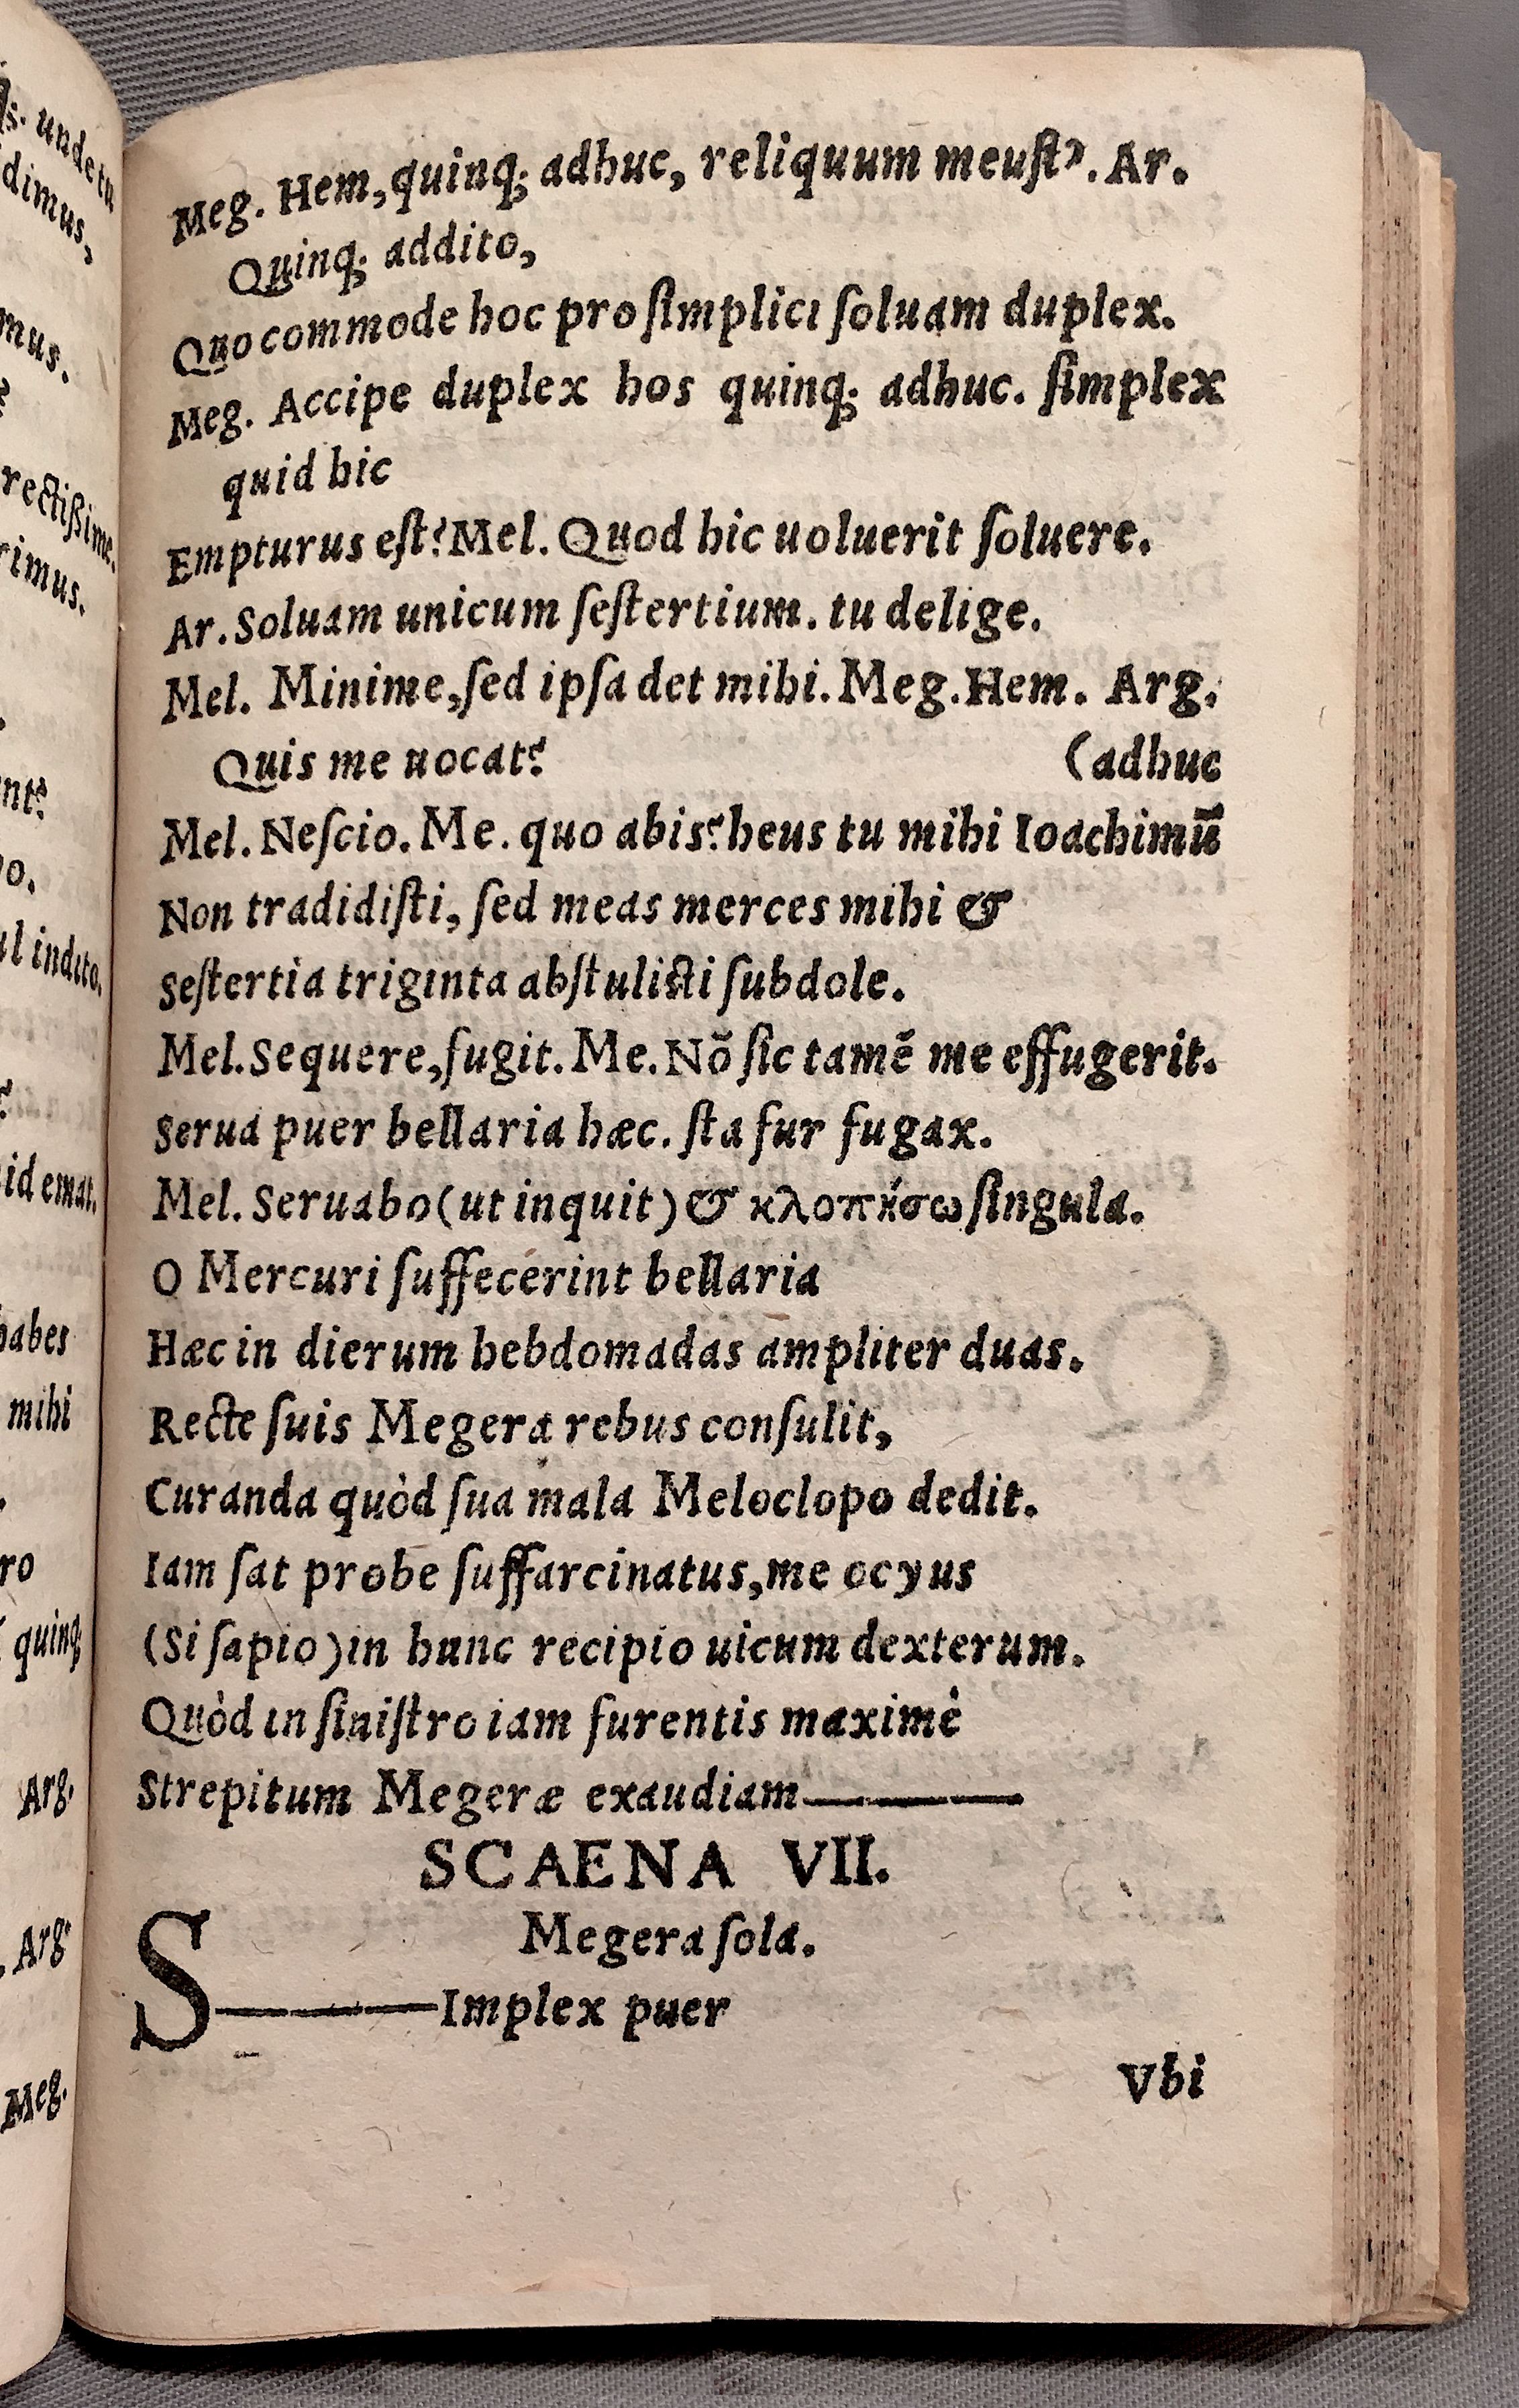 s. unde tu
dimus,
mus.
rectißime.
rimus.
nt?
o.
ul indito.
id emat.
habes
mihi
ro
quinq;
Arg.
Arg.
Meg.
Meg. Hem, quinq; adhuc, reliquum meuſt?. Ar.
Quinq; addito,
Quo commode hoc pro ſimplici ſoluam duplex.
Meg. Accipe duplex hos quinq; adhuc. ſimplex
quid hic
Empturus eſt? Mel. Quod hic uoluerit ſoluere.
Ar. Soluam unicum ſeſtertium. tu delige.
Mel. Minime, ſed ipſa det mihi. Meg. Hem. Arg.
Quis me uocat? (adhuc
Mel. Neſcio. Me. quo abis? heus tu mihi Ioachimū
Non tradidiſti, ſed meas merces mihi &
Seſtertia triginta abſtuliſti ſubdole.
Mel. Sequere, fugit. Me. Nõ ſic tamẽ me effugerit.
Serua puer bellaria hæc. ſta fur fugax.
Mel. Seruabo (ut inquit) & κλοπήσω ſingula.
O Mercuri ſuffecerint bellaria
Hæc in dierum hebdomadas ampliter duas.
Recte ſuis Megera rebus conſulit,
Curanda quòd ſua mala Meloclopo dedit.
Iam ſat probe ſuffarcinatus, me ocyus
(Si ſapio) in hunc recipio uicum dexterum.
Quòd in ſiniſtro iam furentis maximè
Strepitum Megeræ exaudiam———
SCAENA VII.
Megera ſola.
S———Implex puer
Vbi